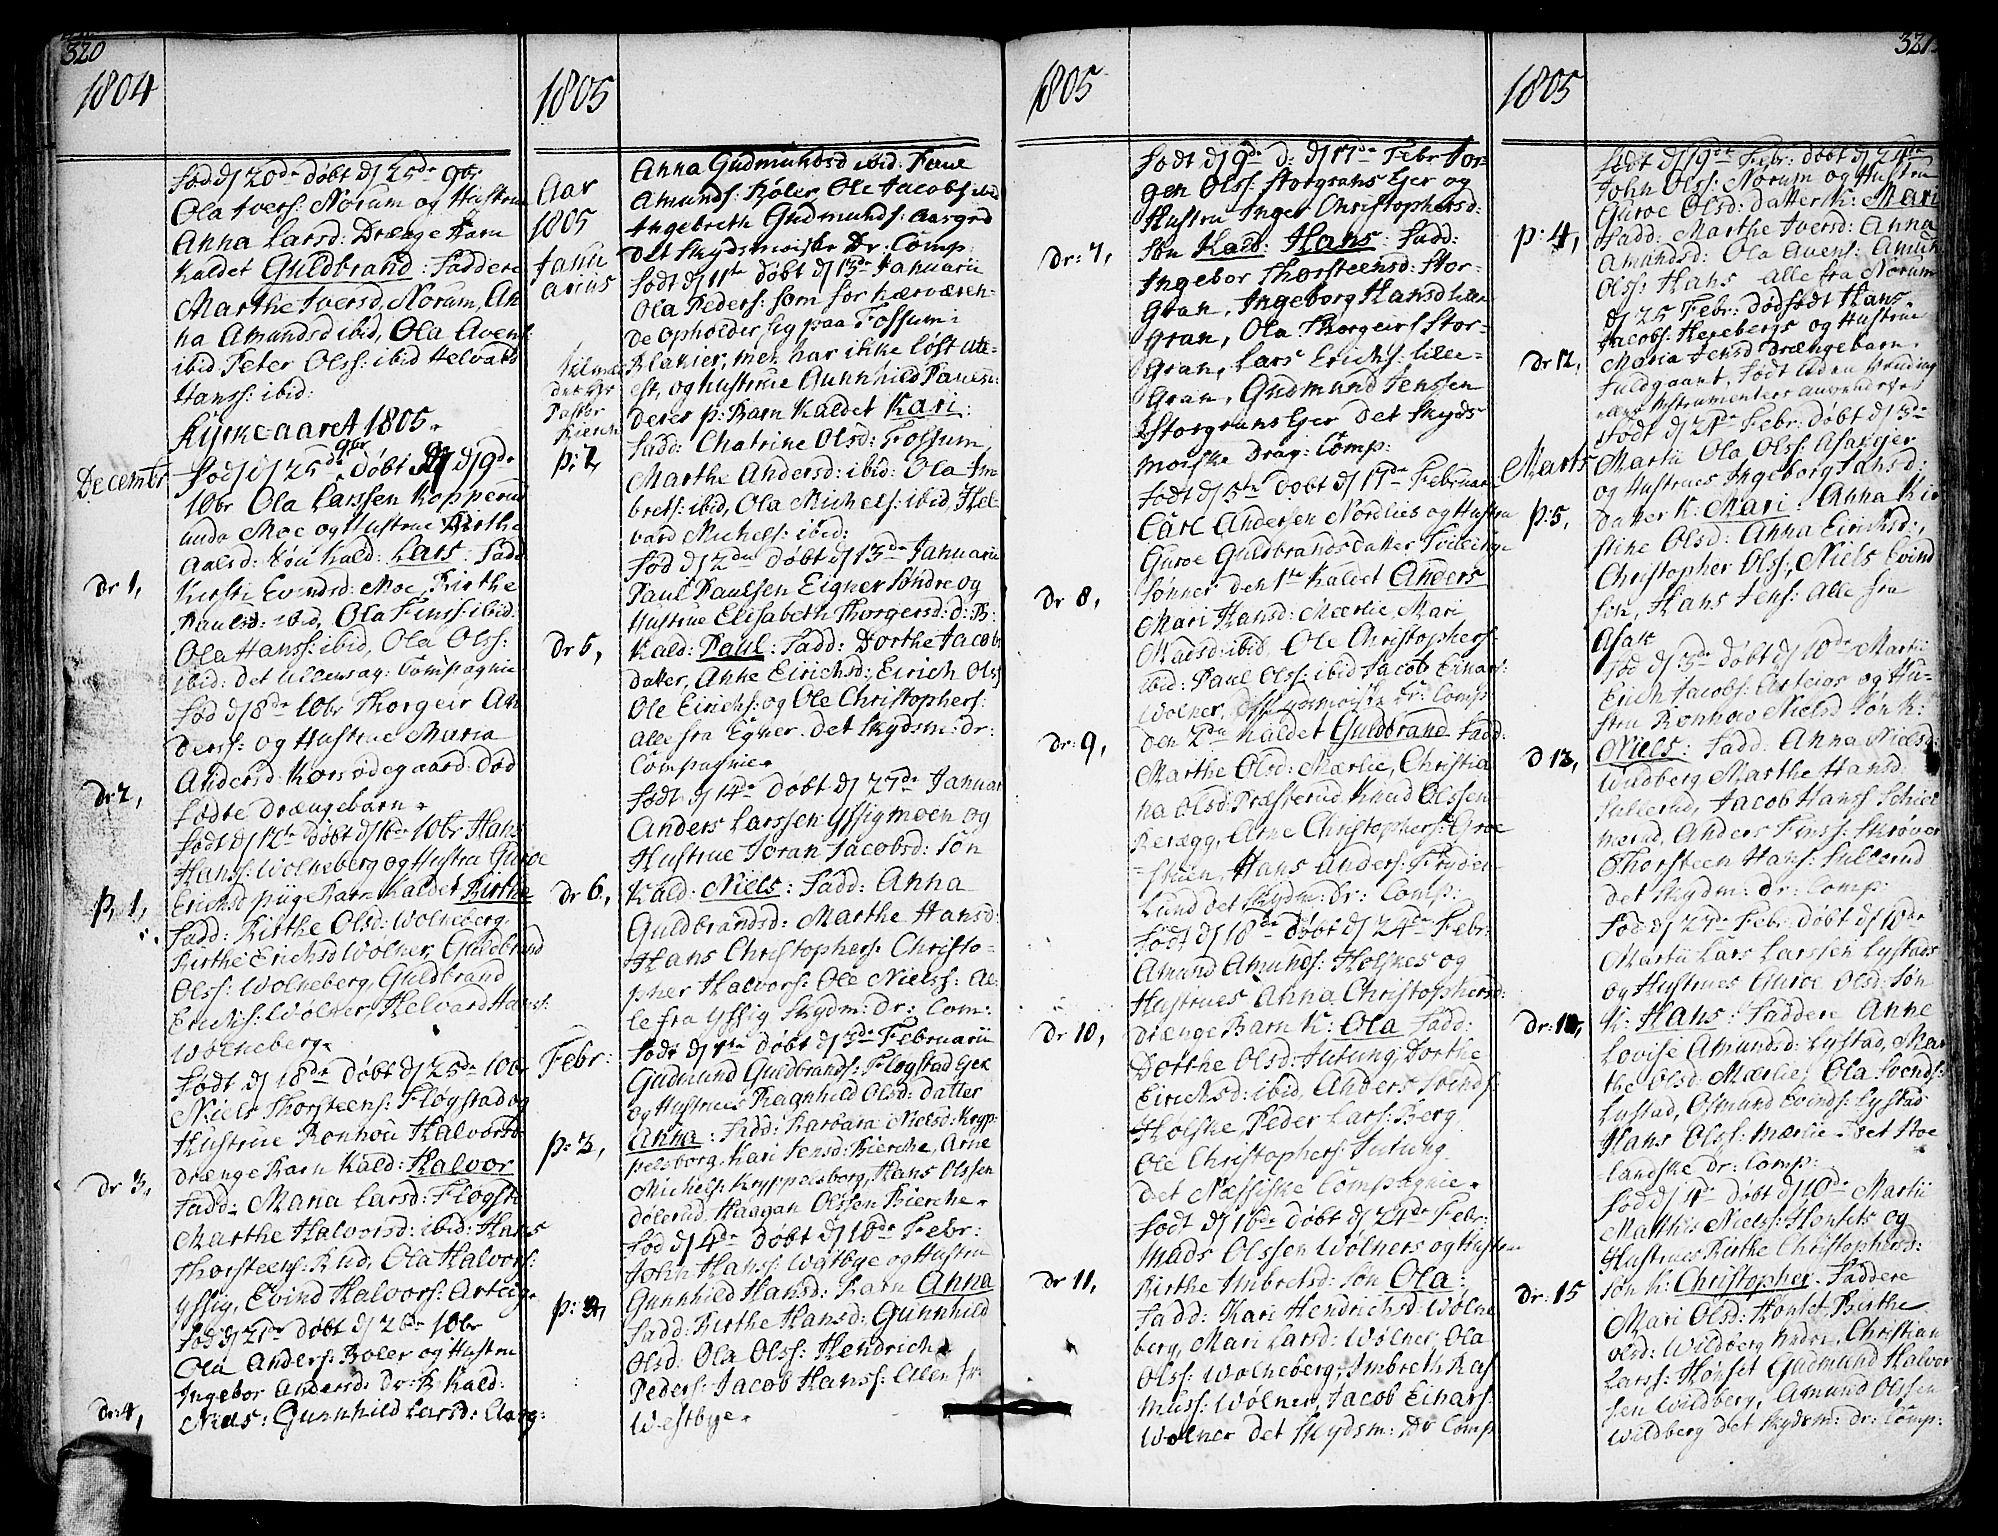 320
1804
Fød d 20de døbt d 25de 9br
Ola Ivers: Norum og Hustrue
Anna Larsd: Drænge Barn
kaldet Guldbrand: Faddere
Marthe Iversd, Norum, An
na Amundsd ibid, Ola Avens
ibid Peter Olss: ibid Helvard
Hanss: ibid:
Kyrkeaaret 1805.
Decembr
Fød d 25de 9br Døbt d 9de
10br Ola Larssen Kopperud
unde Moe og Hustrue Birthe
Dr 1,
Kirsti Evindsd: Moe, Birthe
Paulsd: ibid, Ola Finss: ibid:
Ola Hanss: ibid, Ola Olss:
ibid: det Ullensag: Compagnie
Fød d 8de 10br Thorgeir An
derss: og Hustrue Maria
Dr 2,
Andersd: Korsødegaard: Død
Fødte Drængebarn.
Født d 12te døbt d 16de 10br Hans
Hanss: Wolneberg og Hustru Guroe
P. 1,
Erichsd piige Barn kaldet Birthe
Fadd: Birthe Olsd: Wolneberg
Birthe Erichsd Wolner, Guldbrand
Olss: Wolneberg, Guldbrand
Erichs: Wolner, Helvard Hans:
Wolneberg.
Født d 18de Døbt d 25de 10br
Niels Thorsteens: Flogstad og
Hustrue Ronhou Halvorsd
Dr 3,
drænge Barn Kald: Halvor
Fadd: Maria Larsd: Flogsta
Marthe Halvorsd: ibid: Hans
Thorsteens: Rud, Ola Halvors:
Yssig, Evind Halvors: Arteig
Fød d 21de døbt d 26de 10br
Ola Anders: Boler og Hustru
Ingebor Andersd: Dr: B. Kald:
Dr: 4,
Niels: Gunnhild Larsd: Aarg:
1805
Aar
1805
Janu
arius
Anna Gudmundsd ibid: Arne
Amunds: Boler, Ole Jacobs: ibid
Ingebreth Gudmunds: Aasgrd
det Skydsmoiske Dr: Comp:
Født d 11te døbt d 13de Januarii
Ola Peders: som for nærværen-
de opholder sig paa Fossum i
Blakier, men har ikke løst Atte-
est, og Hustrue Gunnhild Paulsd:
deres p: Barn kaldet Kari:
Fadd: Chatrine Olsd: Fossum
P: 2,
Marthe Andersd: ibid: Ola Im
brets: ibid, Ola Michels: ibid, Hel
vard Michels: ibid:
Fød d 2den døbt d 13de Januarii
Paul Paulsen Eigner Søndre og
Hustrue Elisabeth Thorgersd: D: B:
Dr 5,
kald: Paul: Fadd: Dorthe Jacobs
datter, Anne Eirichsd: Eirich Olss
Ole Eirichs: og Ole Christophers:
Alle fra Egner. det Skydsm: dr:
Compagnie.
Født d 14de døbt d 27de Januar
Anders Larssen Yssigmoen og
Hustrue Joran Jacobsd: Søn
Dr 6,
Kald: Niels: Fadd: Anna
Guldbrandsd: Marthe Hansd:
Hans Christophers: Christo-
pher Halvors: Ole Nielss: Al-
le fra Yssig Skydm: dr: Com:
Febr:
Født d 1te døbt d 3de Februarii
Gudmund Guldbrands: Flogstad Eger
og Hustrues Ragnhild Olsd: datter
P: 3,
Anna: Fadd: Barbara Nielsd: Kryp-
pelsborg, Kari Jensd: Bierche, Arne
Michels: Kryppelsborg, Hans Olssen
Dølerud, Haagan Olssen Bierche.
Fød d 4de Døbt d 10de Febr:
John Hans: Wæstbye og Hustru
P: 4,
Gunnhild Hansd: Barn Anna
Fadd: Birthe Hansd: Gunnhild
Olsd: Ola Olss: Hendrich
Peders: Jacob Hanss: Allen fr:
Westbye.
1805
Født d 9de D: d 17de Febr: Jor-
gen Olss: Storgrans Eger og
Hustru Inger Christophersd:
Dr: 7,
Søn Kald: Hans: Fadd:
Ingebor Thorsteensd: Stor-
Gran, Ingeborg Hansd Lille
Gran, Ola Thorgeirs Stor-
Gran, Lars Erichs: Lille-
Gran, Gudmund Jenssen
Storgrans Eger det Skyds
moiske Drag: Comp:
Født d 5te Døbt d 17de Februar
Carl Andersen Nordlies og Hustru
Guroe Guldbrands datter Tvilinge
Dr 8,
Sønner den 1te kaldet Anders
Mari Hansd: Mærlie, Mari
Madsd: ibid. Ole Christophers:
ibid: Paul Olss: ibid Jacob Einars:
Wolner, det Skydsmoiske Dr: Comp:
Dr: 9,
Den 2den kaldet Guldbrand Fadd:
Marthe Olsd: Mærlie, Christia
na Olsd: Præsterud Knud Olssen
Berægg, Arne Christophers: Groe
Lund det Skydm: Dr: Comp:
Født d 18de Døbt d 24de Febr:
Amund Amunds: Holsnes og
Hustrues Anna Christophersd:
Dr 10,
Drænge Barn K: Ola Fadd:
Dorthe Olsd: Jutung, Dorthe
Eirichsd: ibid, Anders Svends:
Holske, Peder Lars: Berg
Ole Christophers: Jutung
det Næssiske Compagnie.
Født d 16de Døbt d 24de Febr:
Mads Olssen Wolners og Hustru
Dr 11,
Birthe Imbretsd: Søn Ola:
Fadd: Kari Hendrichsd: Wolne
berg, Mari Larsd: Wolner, Ola
Olss: Wolneberg, Imbreth Ras
muss: Wolner, Jacob Einars:
Wolner det Skydsm: Dr Comp
321
1805
Født d 19de Febr: døbt d 24de
John Olss: Norum og Hustru
Guroe Olsd: datter K: Mari
P: 4,
Fadd: Marthe Iversd: Anna
Amundsd: Ola Avens: Amun
Olss: Hans Alle fra Norum
d 25 Febr: dødfødt Hans
Jacobs: Hexebergs og Hustrue
Dr 12,
Maria Jensd Drængebarn.
Fuldgaant, født uden
Instrumenters anvendelse
Født d 21de Febr: Døbt d 3de
Marts
Martii Ola Olss: Asak Eger
og Hustrues Ingeborg Jansd:
P: 5,
datter K: Mari: Anna Kir
stine Olsd: Anna Eirichsd:,
Christopher Olss:, Niels Evind
sen, Hans Jens: Alle fra
Asak
Fød d 3de døbt d 10de Martii
Erich Jacobs: Arteigs og Hu-
stru Ronhou Nielsd Søn K:
D 13,
Niels: Fadd: Anna Nielsd:
Wildberg Marthe Hansd:
Fullerud, Jacob Hanss Schier
merud, Anders Finss: Skrøver
Thorsteen Hans: Fullerud
det Skydm: dr: Comp:
Fød d 27de Febr: Døbt d 10de
Martii Lars Larssen Lystads
og Hustrues Guroe Olsd: Søn
K: Hans: Faddere Anne
Lovise Amundsd: Lystad, Mar
the Olsd Mærlie, Ola Svends:
Lystad, Osmund Evinds: Lystad
Hans Olss: Mærlie. Det Høe
landske dr: Comp:
Fød d 4de døbt d 10de Martii
Matthis Niels: Honsets og
Hustrues Birthe Christophersd:
Dr: 15
Søn K: Christopher. Faddere
Mari Olsd: Honset Birthe
Olsd: Wildberg nedre, Christian
Larss: Hønset Gudmund Halvor
sen Wildberg, Amund Olssen
Wildberg det Skydsm: dr: Comp: